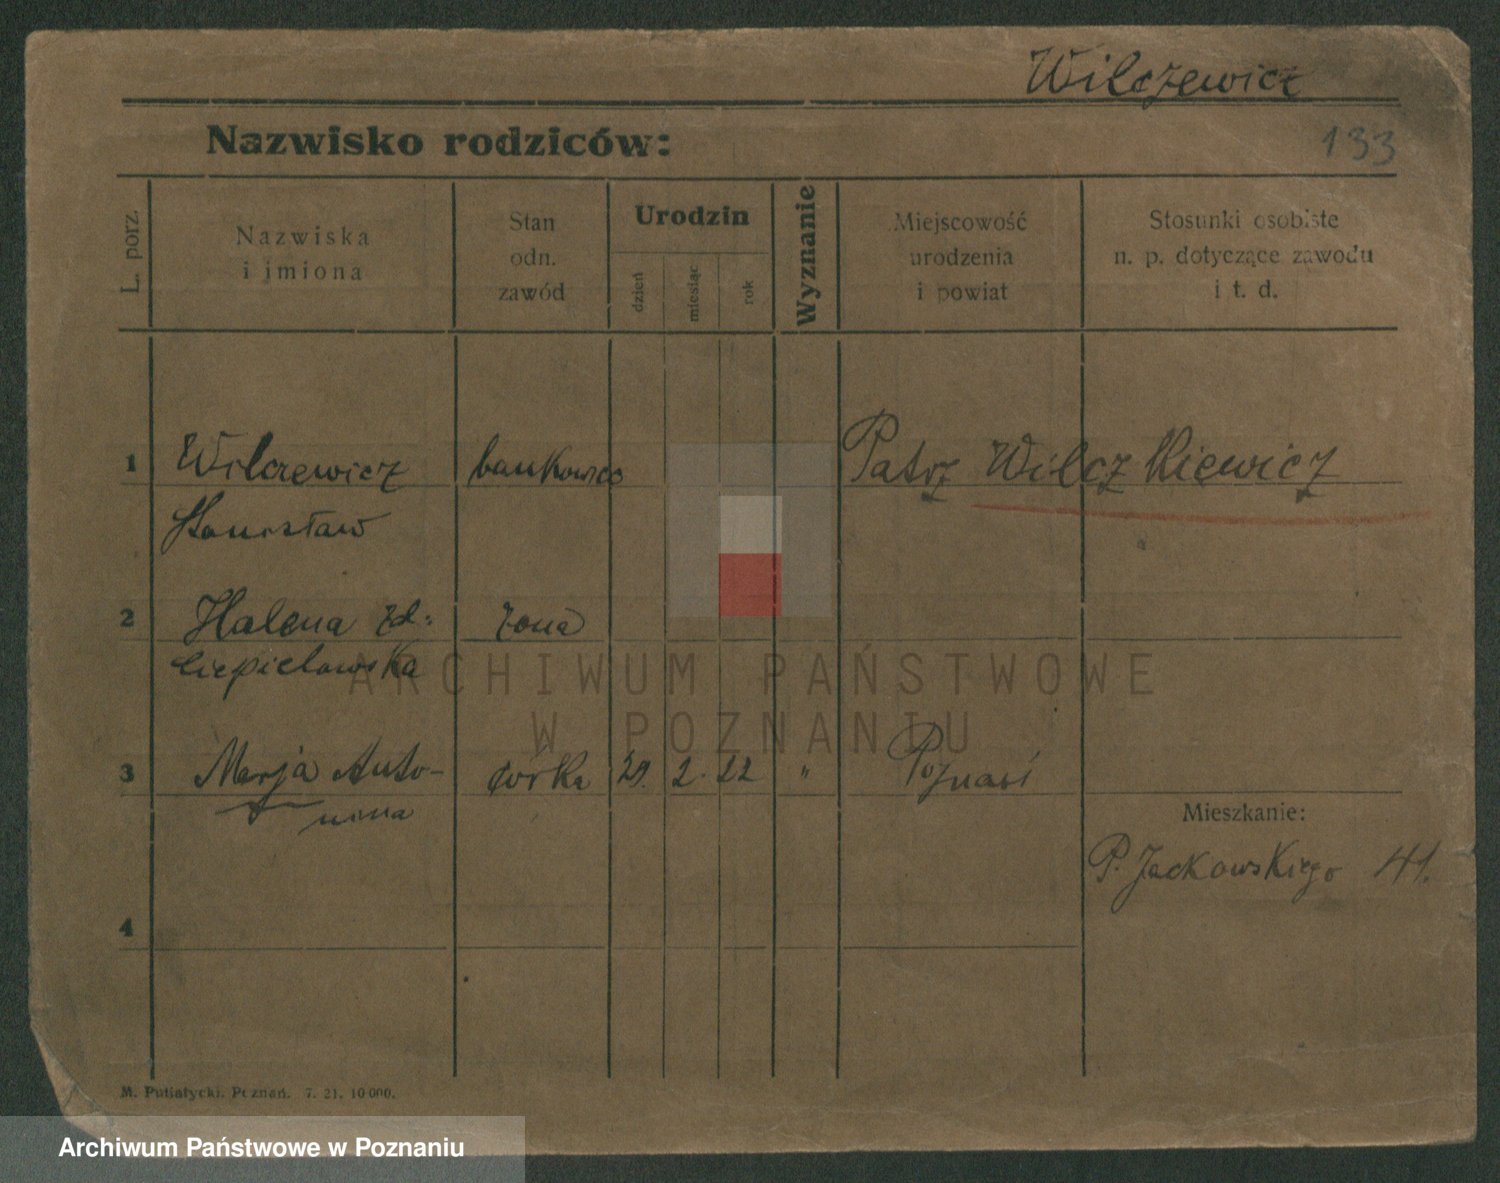 Wilczewicz
Nazwisko rodziców:
133
L. porz.
Nazwiska
i imiona
Stan
odn.
zawód
Urodzin
dzień
miesiąc
rok
Wyznanie
Miejscowość
urodzenia
i powiat
Stosunki osobiste
n. p. dotyczące zawodu
i t. d.
1 Wilczewicz bankowiec Patrz Wilczkiewicz
Stanisław
2 Halena zd. żona
Ciepielowska
3 Marja Anto- córka 29. 2. 22 " Poznań
nina
Mieszkanie:
P. Jackowskiego 41.
4
M. Putiatycki. Poznań. 7. 21. 10 000.
ARCHIWUM PAŃSTWOWE
W POZNANIU
Archiwum Państwowe w Poznaniu